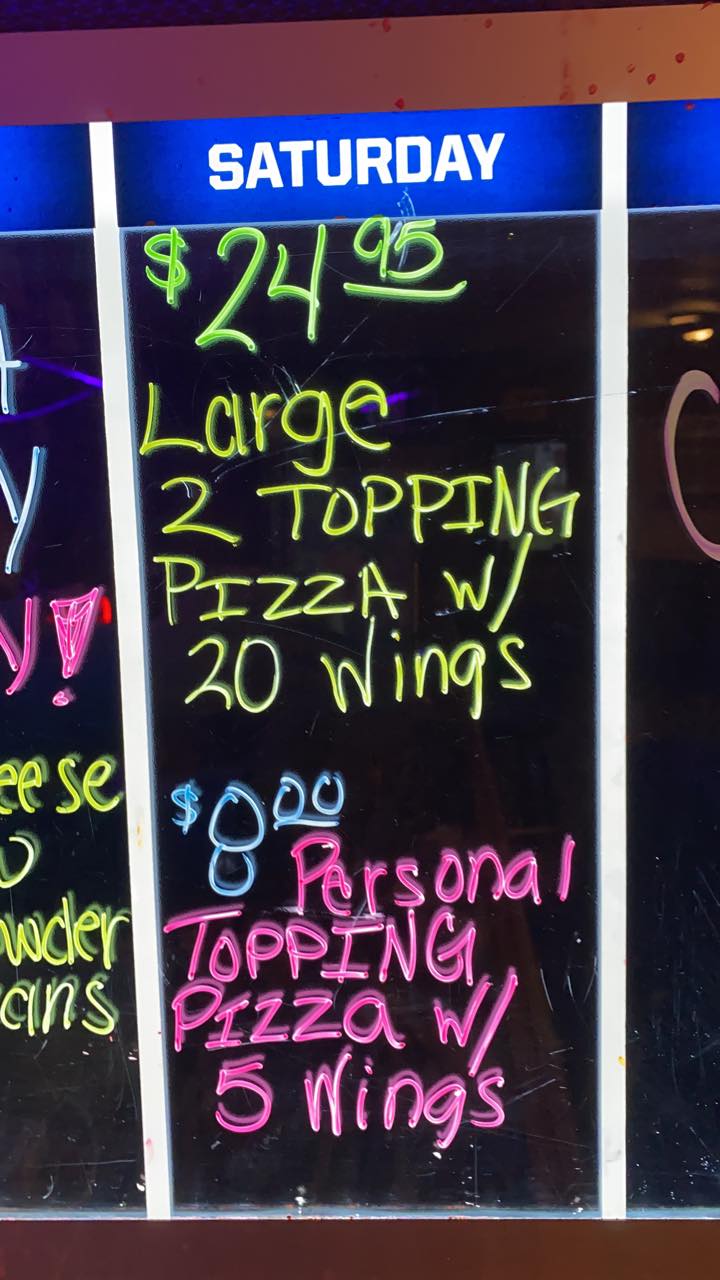 SATURDAY
$24.95
Large
2 TOPPING
PIZZA W/
20 Wings
$8.00
Personal
TOPPING
PIzza W/
5 Wings
eese
owder
eans